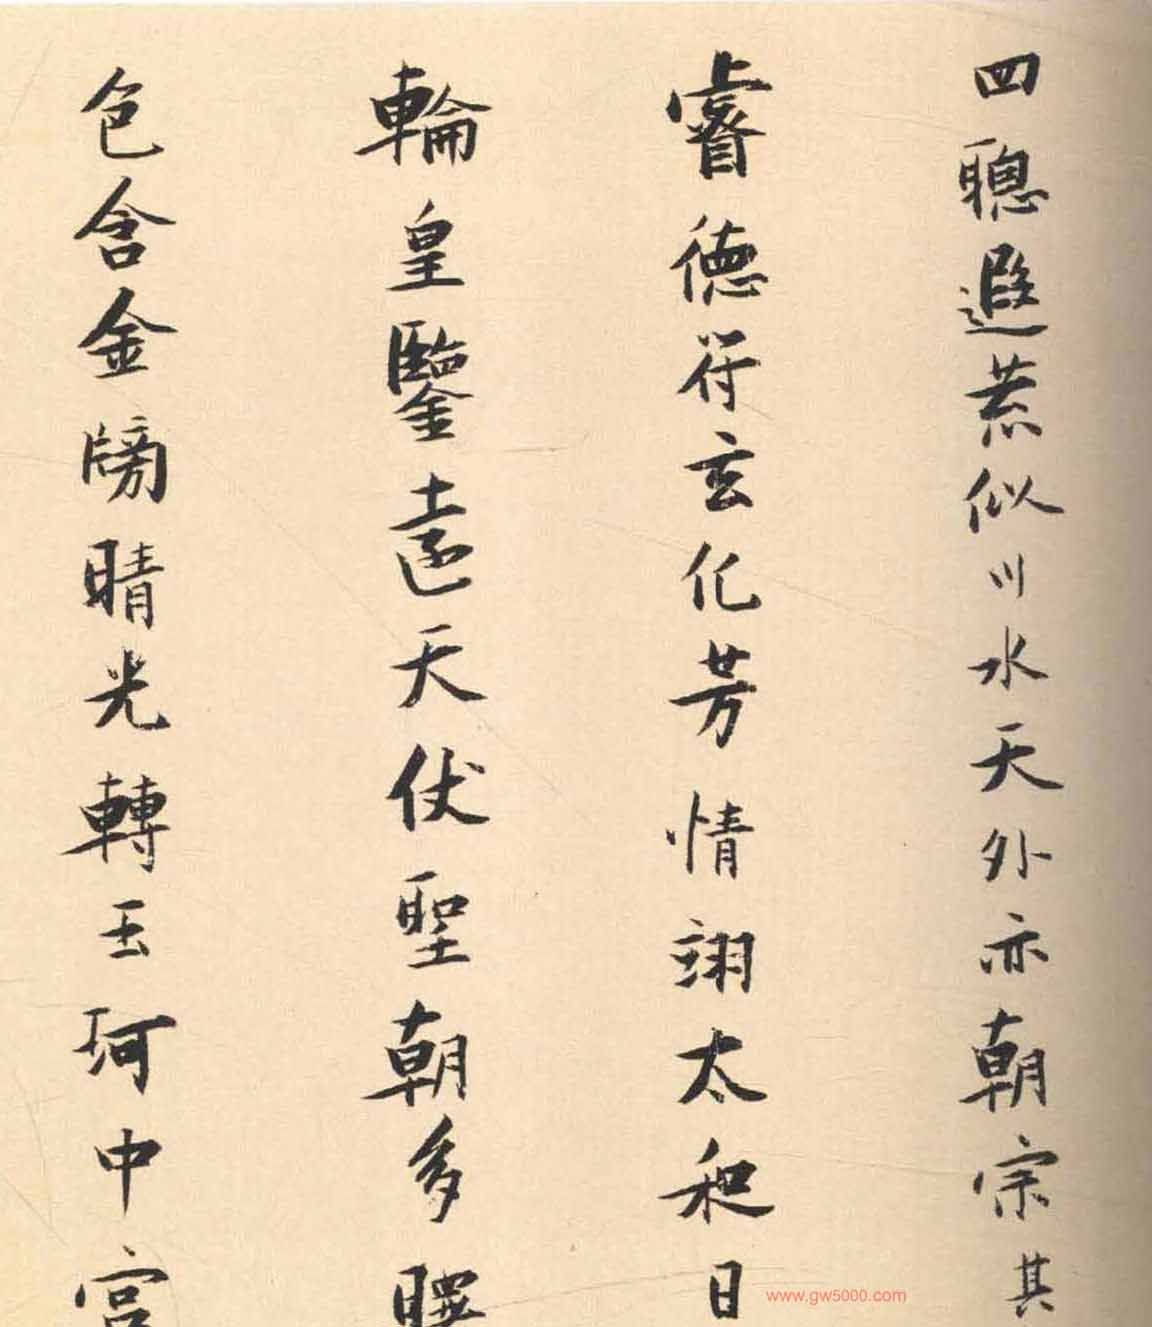 四聰遐荒似川水天外亦朝宗其
睿德符玄化芳情翊太和日
輪皇鑒遠天仗聖朝多暇
包含金牓晴光轉玉珂中宮
www.gw5000.com